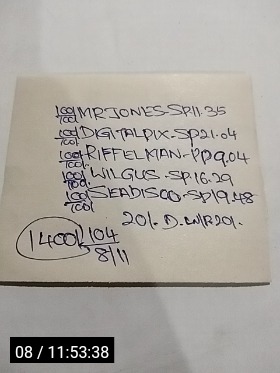 100/100/ MRJONES-SP11.35
100/100/ DIGITALPIX-SP21.04
100/100/ RIFFELMAN-PP9.04
100/100/ WILGUS-SP.16.29
100/100/ SEADISCO-SP19.48
20/. D. W/R20/.
1400/ 104
8/11
08 / 11:53:38